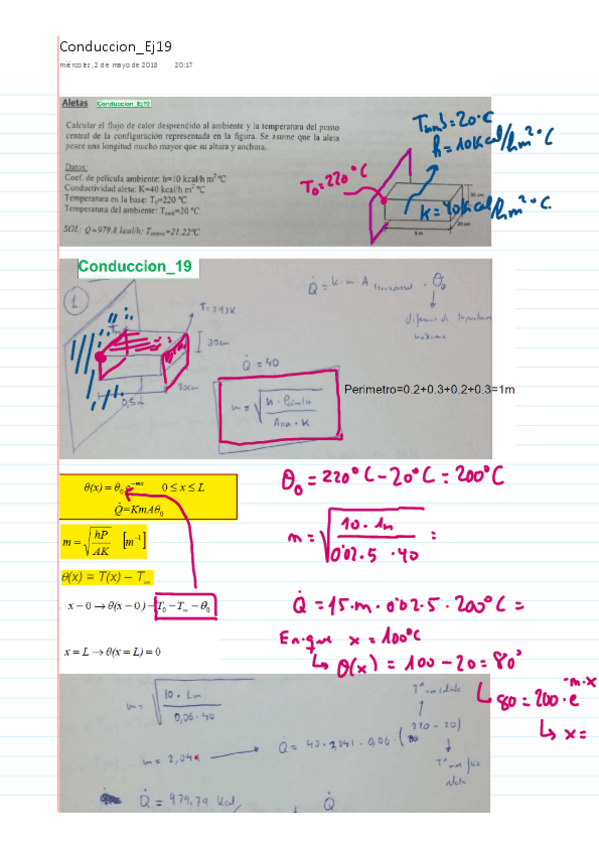 Conduccion_Ej19
miércoles, 2 de mayo de 2018 20:17
Aletas Conduccion_Ej19
Calcular el flujo de calor desprendido al ambiente y la temperatura del punto
central de la configuración representada en la figura. Se asume que la aleta
posee una longitud mucho mayor que su altura y anchura.
Datos:
Coef. de película ambiente: h=10 kcal/h m² ºC
Conductividad aleta: K=40 kcal/h m² ºC
Temperatura en la base: T₀=220 ºC
Temperatura del ambiente: Tamb=20 ºC
SOL: Q=979.8 kcal/h; Tcentro=21.22ºC
Tamb=20ºC
h=10Kcal/hm²ºC
T₀=220ºC
K=40Kcal/hm²ºC
Conduccion_19
1
T=293K
30cm
20cm
0,5m
Q̇ = K·m A · θ₀
Q̇ = 40
m = √(h · Perímetro / Área · K)
Perimetro=0.2+0.3+0.2+0.3=1m
θ(x) = θ₀ e^(-mx) 0 ≤ x ≤ L
Q̇=KmAθ₀
m = √(hP / AK) [m⁻¹]
θ(x) = T(x) − T∞
x=0 → θ(x=0)=T₀−T∞=θ₀
x = L → θ(x = L) = 0
θ₀ = 220ºC − 20ºC = 200ºC
m = √(10·1m / 0'02·5·40) =
Q̇ = 15·m·0'02·5·200ºC =
En que x = 100ºC
↳ θ(x) = 100 − 20 = 80º
↳ 80 = 200·e^(-m·x)
↳ x =
m = √(10·1m / 0,06·40)
m = 2,041 → Q̇ = 40·2,041·0,06·(220−20)
Q̇ = 979,79 Kcal
Q̇